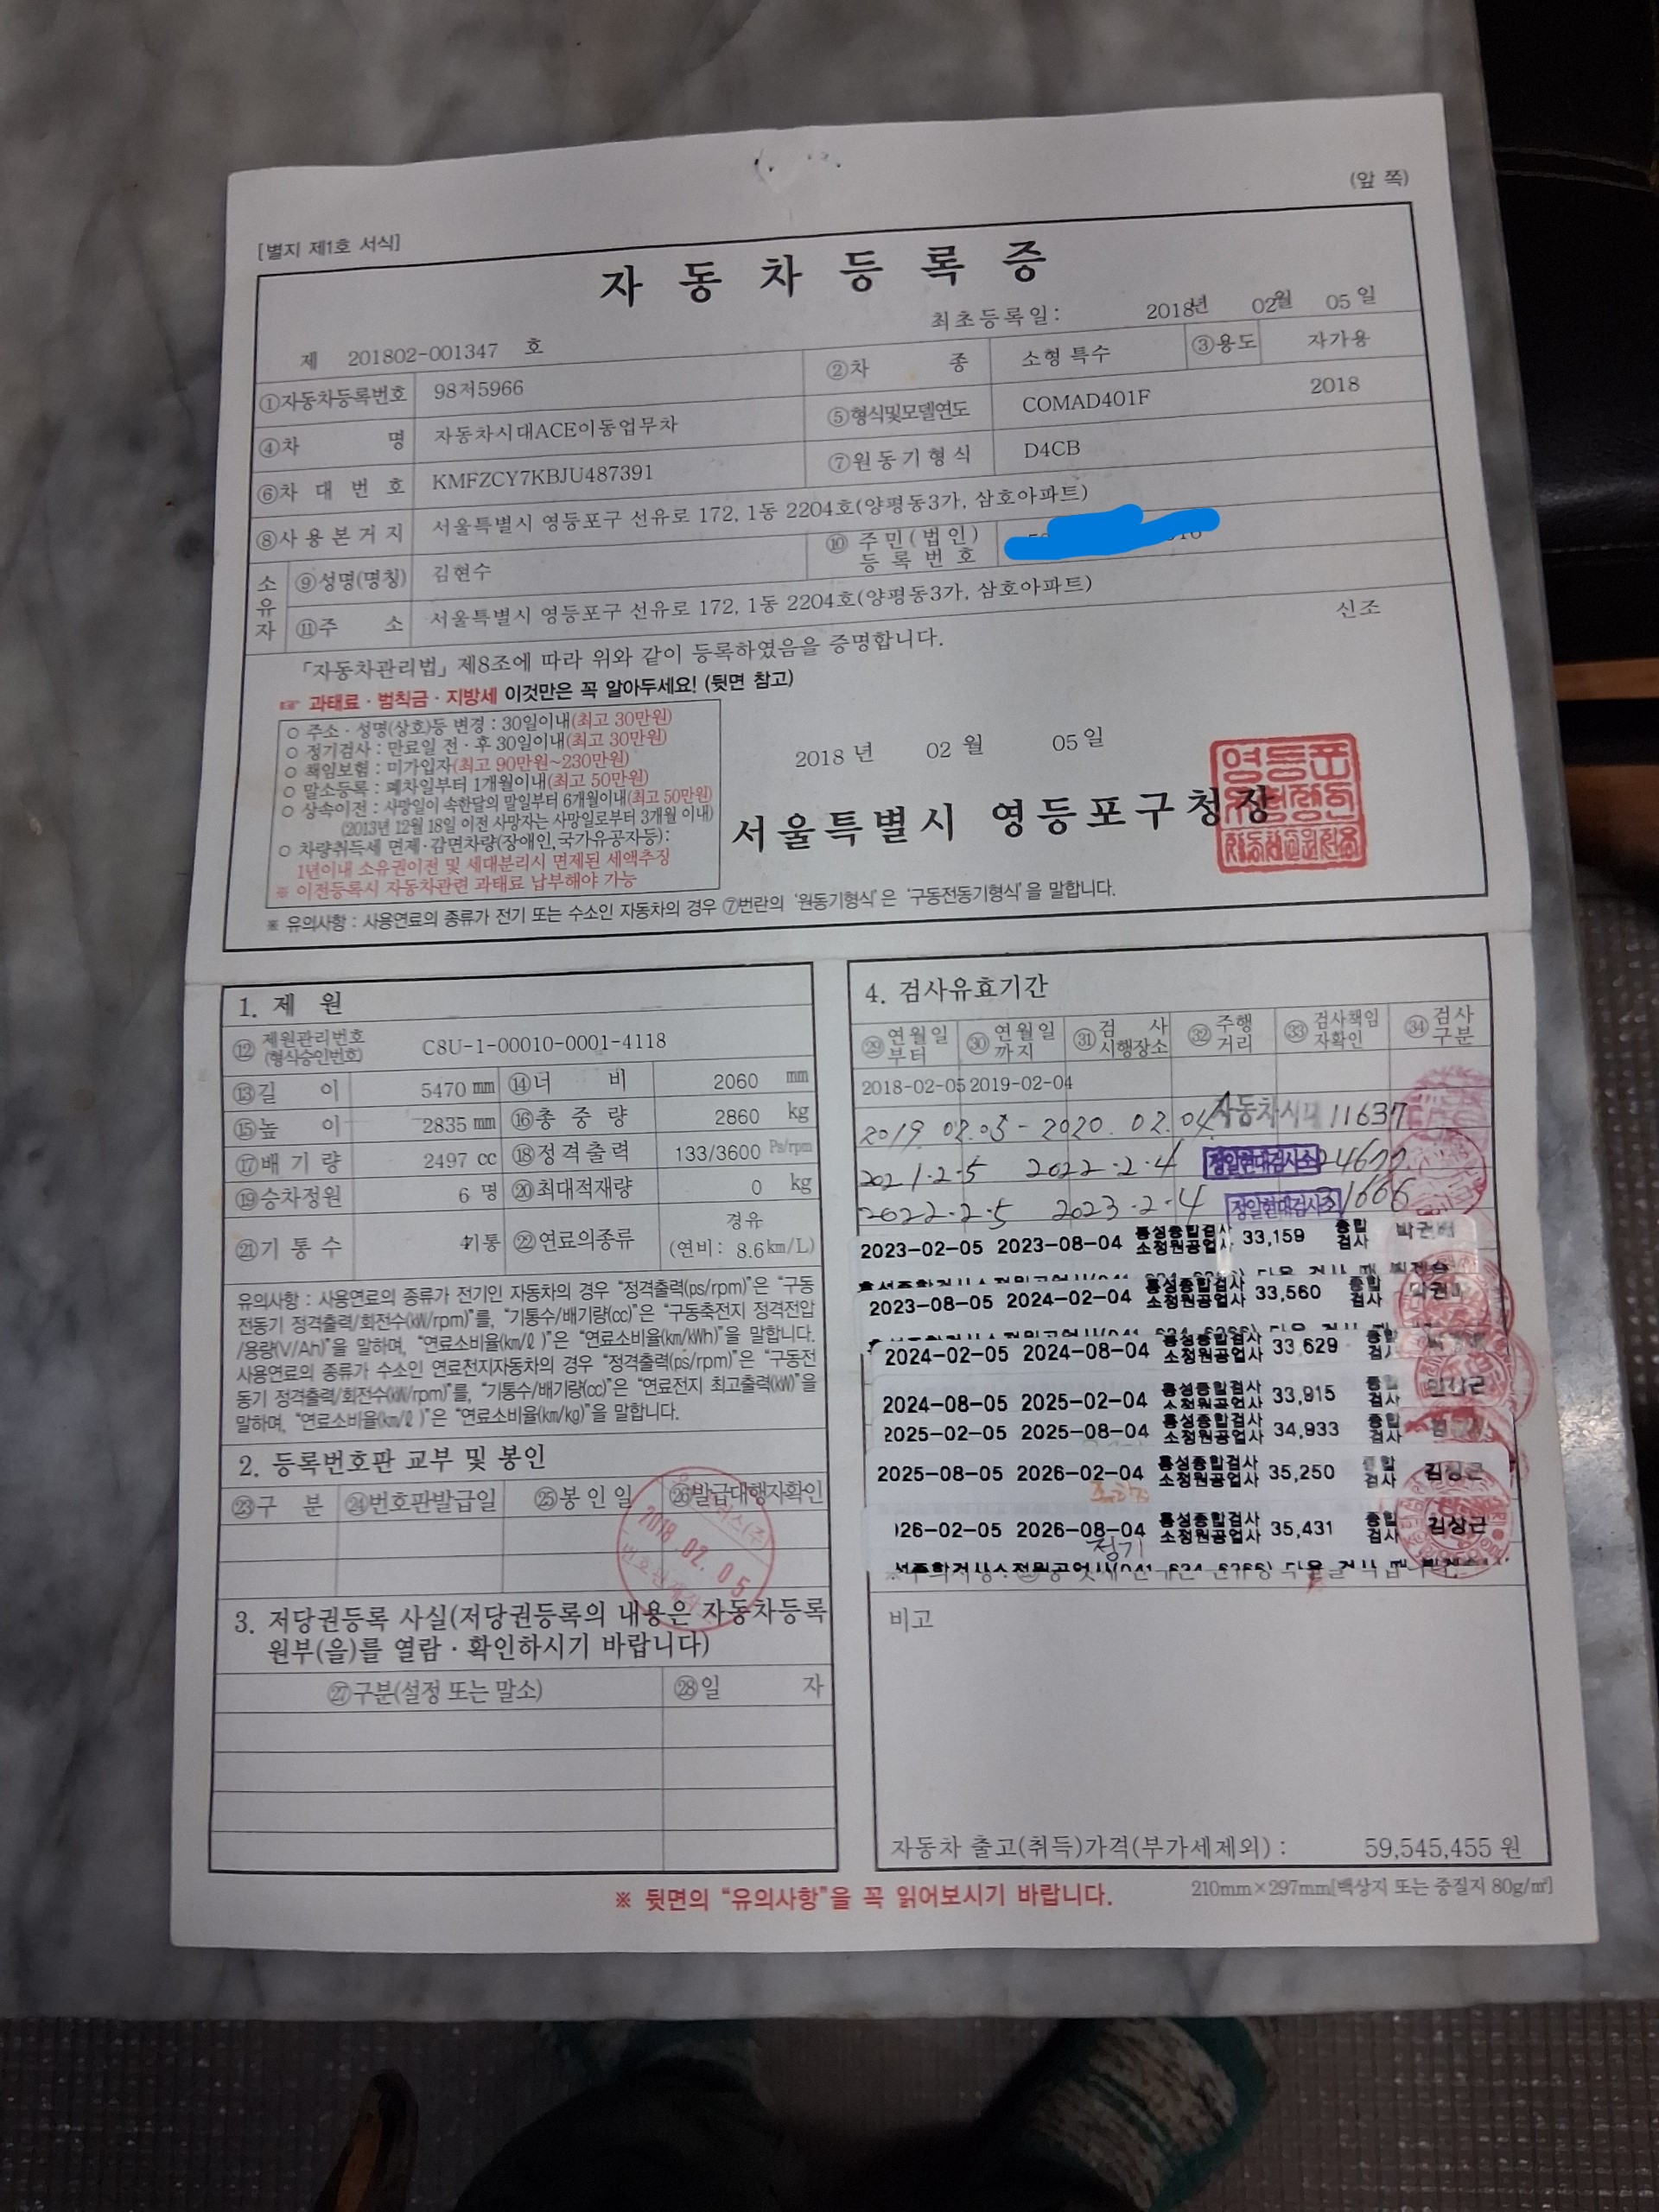 (앞 쪽)
[별지 제1호 서식]
자 동 차 등 록 증
최초등록일: 2018년 02월 05일
제 201802-001347 호
①자동차등록번호 98저5966 ②차 종 소형 특수 ③용도 자가용
④차 명 자동차시대ACE이동업무차 ⑤형식및모델연도 COMAD401F 2018
⑥차 대 번 호 KMFZCY7KBJU487391 ⑦원동기형식 D4CB
⑧사용본거지 서울특별시 영등포구 선유로 172, 1동 2204호(양평동3가, 삼호아파트)
소유자 ⑨성명(명칭) 김현수 ⑩ 주민(법인)등록번호
⑪주 소 서울특별시 영등포구 선유로 172, 1동 2204호(양평동3가, 삼호아파트)
신조
「자동차관리법」제8조에 따라 위와 같이 등록하였음을 증명합니다.
☞ 과태료·범칙금·지방세 이것만은 꼭 알아두세요! (뒷면 참고)
○ 주소·성명(상호)등 변경 : 30일이내(최고 30만원)
○ 정기검사 : 만료일 전·후 30일이내(최고 30만원)
○ 책임보험 : 미가입자(최고 90만원~230만원)
○ 말소등록 : 폐차일부터 1개월이내(최고 50만원)
○ 상속이전 : 사망일이 속한달의 말일부터 6개월이내(최고 50만원)
(2013년 12월 18일 이전 사망자는 사망일로부터 3개월 이내)
○ 차량취득세 면제·감면차량(장애인,국가유공자등):
1년이내 소유권이전 및 세대분리시 면제된 세액추징
※ 이전등록시 자동차관련 과태료 납부해야 가능
2018 년 02 월 05 일
서울특별시 영등포구청장
※ 유의사항 : 사용연료의 종류가 전기 또는 수소인 자동차의 경우 ⑦번란의 '원동기형식'은 '구동전동기형식'을 말합니다.
1. 제 원
⑫ 제원관리번호(형식승인번호) C8U-1-00010-0001-4118
⑬길 이 5470 mm ⑭너 비 2060 mm
⑮높 이 2835 mm ⑯총 중 량 2860 kg
⑰배 기 량 2497 cc ⑱정격출력 133/3600 Ps/rpm
⑲승차정원 6 명 ⑳최대적재량 0 kg
㉑기 통 수 4기통 ㉒연료의종류 경유
(연비: 8.6km/L)
유의사항 : 사용연료의 종류가 전기인 자동차의 경우 "정격출력(ps/rpm)"은 "구동
전동기 정격출력/회전수(kW/rpm)"를, "기통수/배기량(cc)"은 "구동축전지 정격전압
/용량(V/Ah)"을 말하며, "연료소비율(km/ℓ)"은 "연료소비율(km/kWh)"을 말합니다.
사용연료의 종류가 수소인 연료전지자동차의 경우 "정격출력(ps/rpm)"은 "구동전
동기 정격출력/회전수(kW/rpm)"를, "기통수/배기량(cc)"은 "연료전지 최고출력(kW)"을
말하며, "연료소비율(km/ℓ)"은 "연료소비율(km/kg)"을 말합니다.
2. 등록번호판 교부 및 봉인
㉓구 분 ㉔번호판발급일 ㉕봉 인 일 ㉖발급대행자확인
2018. 02. 05
3. 저당권등록 사실(저당권등록의 내용은 자동차등록
원부(을)를 열람·확인하시기 바랍니다)
㉗구분(설정 또는 말소) ㉘일 자
4. 검사유효기간
㉙연월일부터 ㉚연월일까지 ㉛검 사 시행장소 ㉜주행거리 ㉝검사책임자확인 ㉞검사구분
2018-02-05 2019-02-04
2019 02.05 - 2020. 02. 04 자동차시대 11637
2021.2.5 2022.2.4 정일현대검사소 24600
2022.2.5 2023.2.4 정일현대검사소 31666
2023-02-05 2023-08-04 홍성종합검사소정원공업사 33,159 종합검사
2023-08-05 2024-02-04 홍성종합검사소정원공업사 33,560 종합검사
2024-02-05 2024-08-04 홍성종합검사소정원공업사 33,629 종합검사
2024-08-05 2025-02-04 홍성종합검사소정원공업사 33,915 종합검사
2025-02-05 2025-08-04 홍성종합검사소정원공업사 34,933 종합검사
2025-08-05 2026-02-04 홍성종합검사소정원공업사 35,250 종합검사 김상근
26-02-05 2026-08-04 홍성종합검사소정원공업사 35,431 종합검사 김상근
정기
비고
자동차 출고(취득)가격(부가세제외) : 59,545,455 원
※ 뒷면의 "유의사항"을 꼭 읽어보시기 바랍니다.
210mm×297mm[백상지 또는 중질지 80g/㎡]